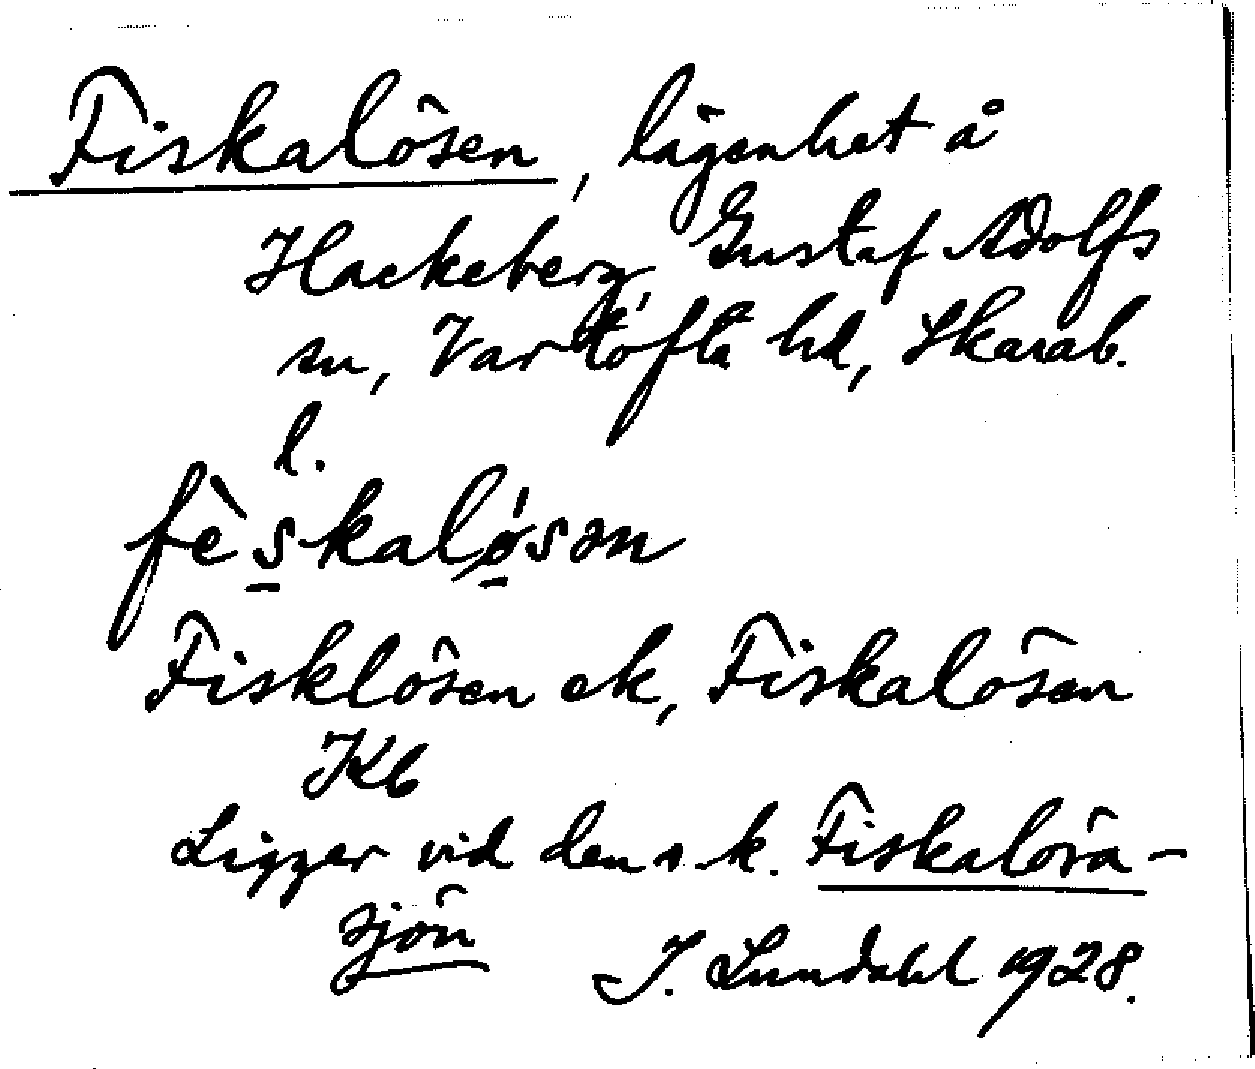 Fiskalösen, lägenhet å
Hackeberg, Gustaf Adolfs
sn, Vartofta hd, Skarab.
l.
fèskaløsən
Fisklösen ek, Fiskalösen
Kb
Ligger vid den s. k. Fiskalösa-
sjön
I. Lundahl 1928.